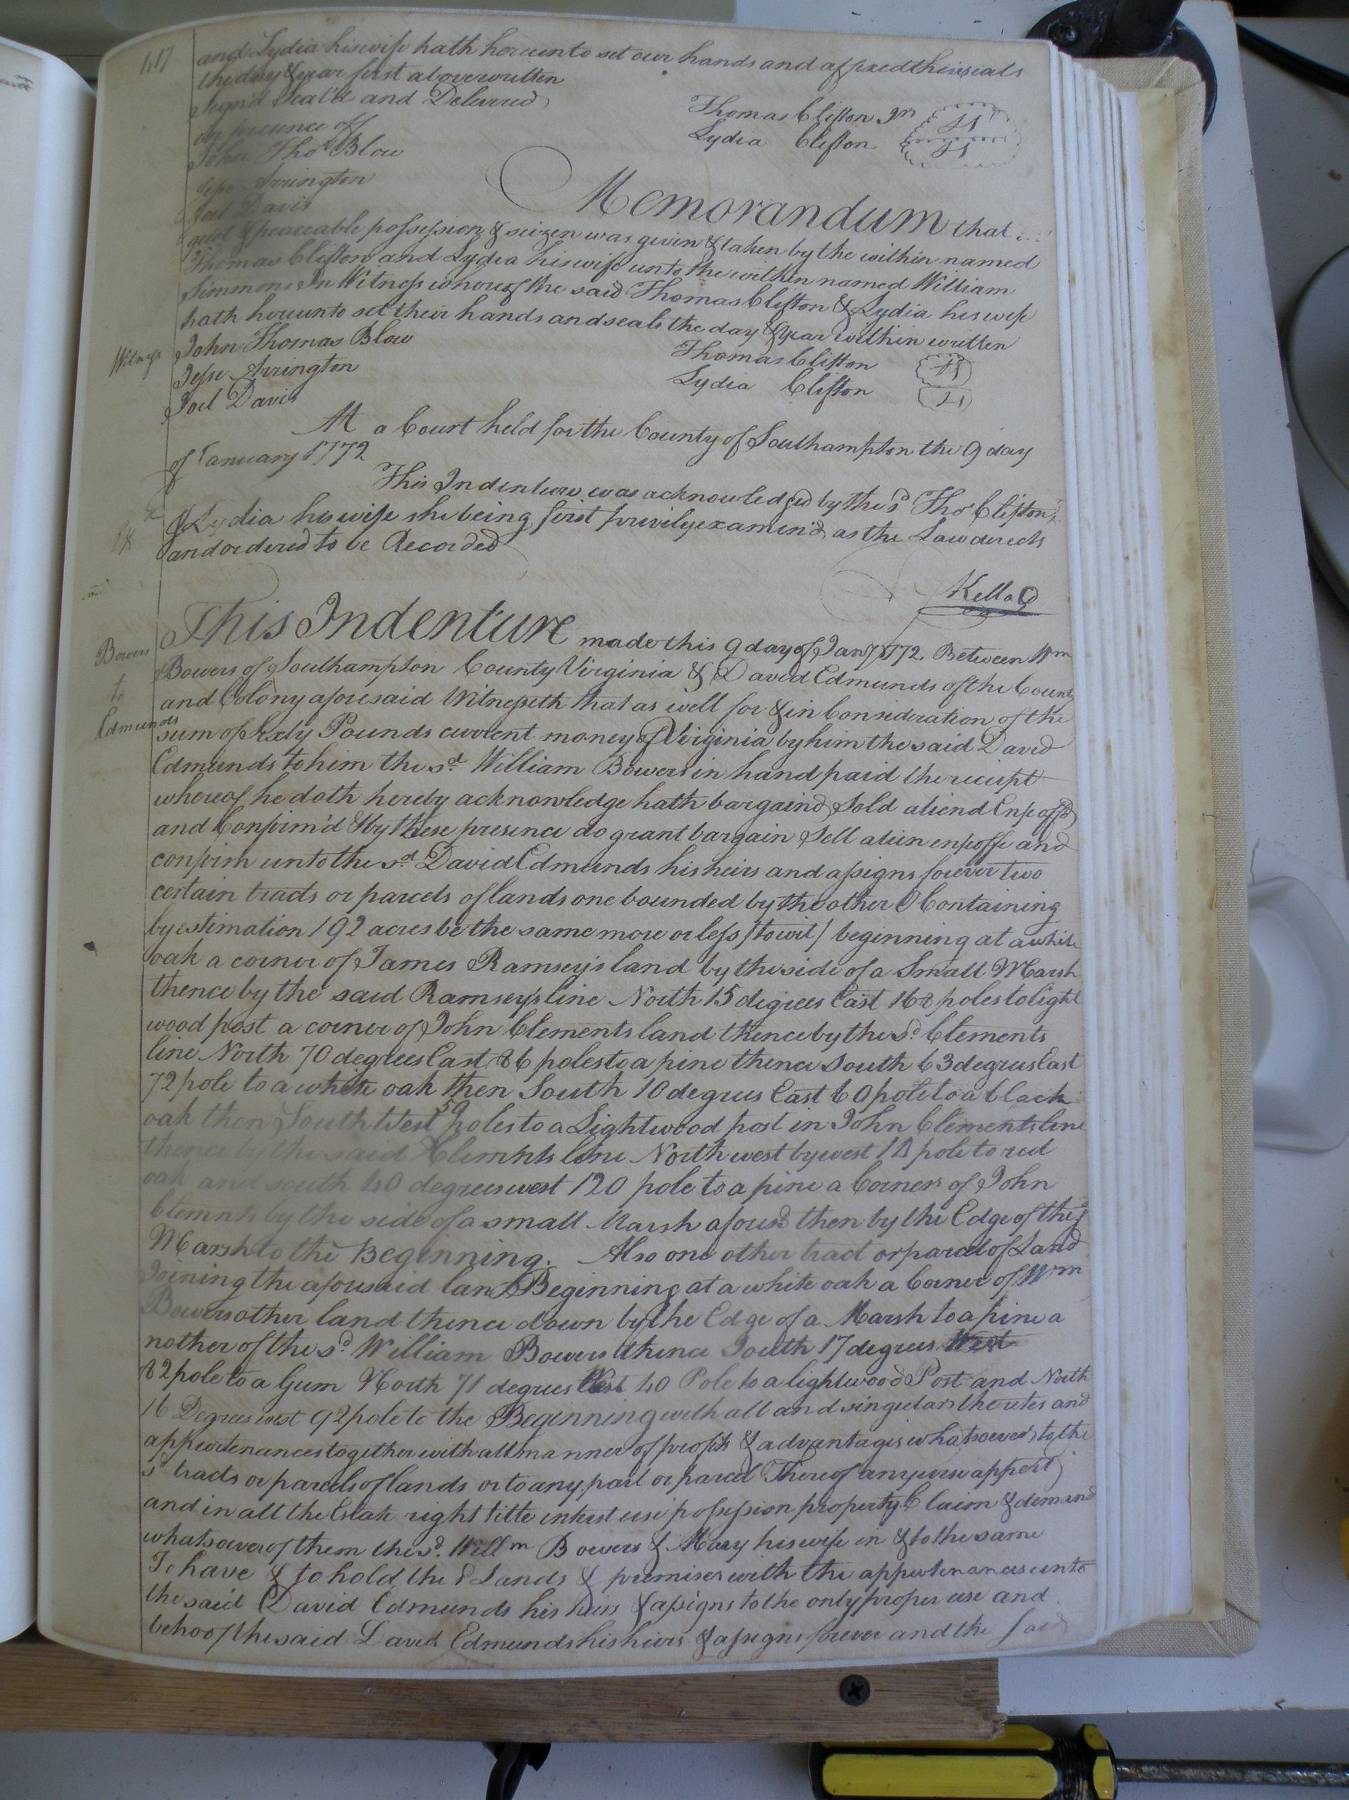 417
and Lydia his wife hath hereunto set our hands and affixed their seals
the day & year first above written
Sign'd Seal'd and Deliver'd
in presence of
Thomas Clifton Jnr LS
Lydia Clifton LS
John Thos Blow
Jesse Arrington
Joel Davis
Memorandum that
quiet & peaceable possession & seizen was given & taken by the within named
Thomas Clifton and Lydia his wife unto the within named William
Simmons In Witness whereof the said Thomas Clifton & Lydia his wife
hath hereunto set their hands and seals the day & year within written
Witness
John Thomas Blow
Jesse Arrington
Joel Davis
Thomas Clifton LS
Lydia Clifton LS
At a Court held for the County of Southampton the 9 day
of January 1772
This Indenture was acknowledged by the sd Thos Clifton
& Lydia his wife she being first privily examin'd as the Law directs
and ordered to be Recorded
Kello
Bowers
to
Edmunds
This Indenture made this 9 day of Jany 1772 Between Wm
Bowers of Southampton County Virginia & David Edmunds of the County
and Colony aforesaid Witnesseth that as well for & in Consideration of the
sum of Sixty Pounds current money of Virginia by him the said David
Edmunds to him the sd William Bowers in hand paid the receipt
whereof he doth hereby acknowledge hath bargaind Sold aliend Enfeoff'd
and Confirm'd & by these presence do grant bargain Sell alien enfeoffe and
confirm unto the sd David Edmunds his heirs and assigns forever two
certain tracts or parcels of lands one bounded by the other Containing
by estimation 192 acres be the same more or less /to wit/ beginning at a white
oak a corner of James Ramsey's land by the side of a Small Marsh
thence by the said Ramsey's line North 15 degrees East 168 poles to light
wood post a corner of John Clements land thence by the sd Clements
line North 70 degrees East 86 poles to a pine thence South 63 degrees East
72 pole to a white oak then South 10 degrees East 60 pole to a black
oak then South West 59 poles to a Lightwood post in John Clements line
thence by the said Clemnts line North west by west 14 pole to red
oak and south 40 degrees west 120 pole to a pine a Corner of John
Clemnts by the side of a small Marsh aforesd then by the Edge of the sd
Marsh to the Beginning. Also one other tract or parcel of Land
Joining the aforesaid land Beginning at a white oak a Corner of Wm
Bowers other land thence down by the Edge of a Marsh to a pine a
nother of the sd William Bowers thence South 17 degrees West
82 pole to a Gum North 71 degrees West 40 Pole to a lightwood Post and North
16 Degrees west 92 pole to the Beginning with all and singular the utes and
appurtenances together with all manner of profits & advantages whatsoever to the
sd tracts or parcels of lands or to any part or parcel Thereof anywise appert
and in all the Estate right title interest use possession property Claim & demand
whatsoever of them the sd Willm Bowers & Mary his wife in & to the same
To have & to hold the sd Lands & premises with the appurtenances unto
the said David Edmunds his heirs & assigns to the only proper use and
behoof the said David Edmunds his heirs & assigns forever and the said